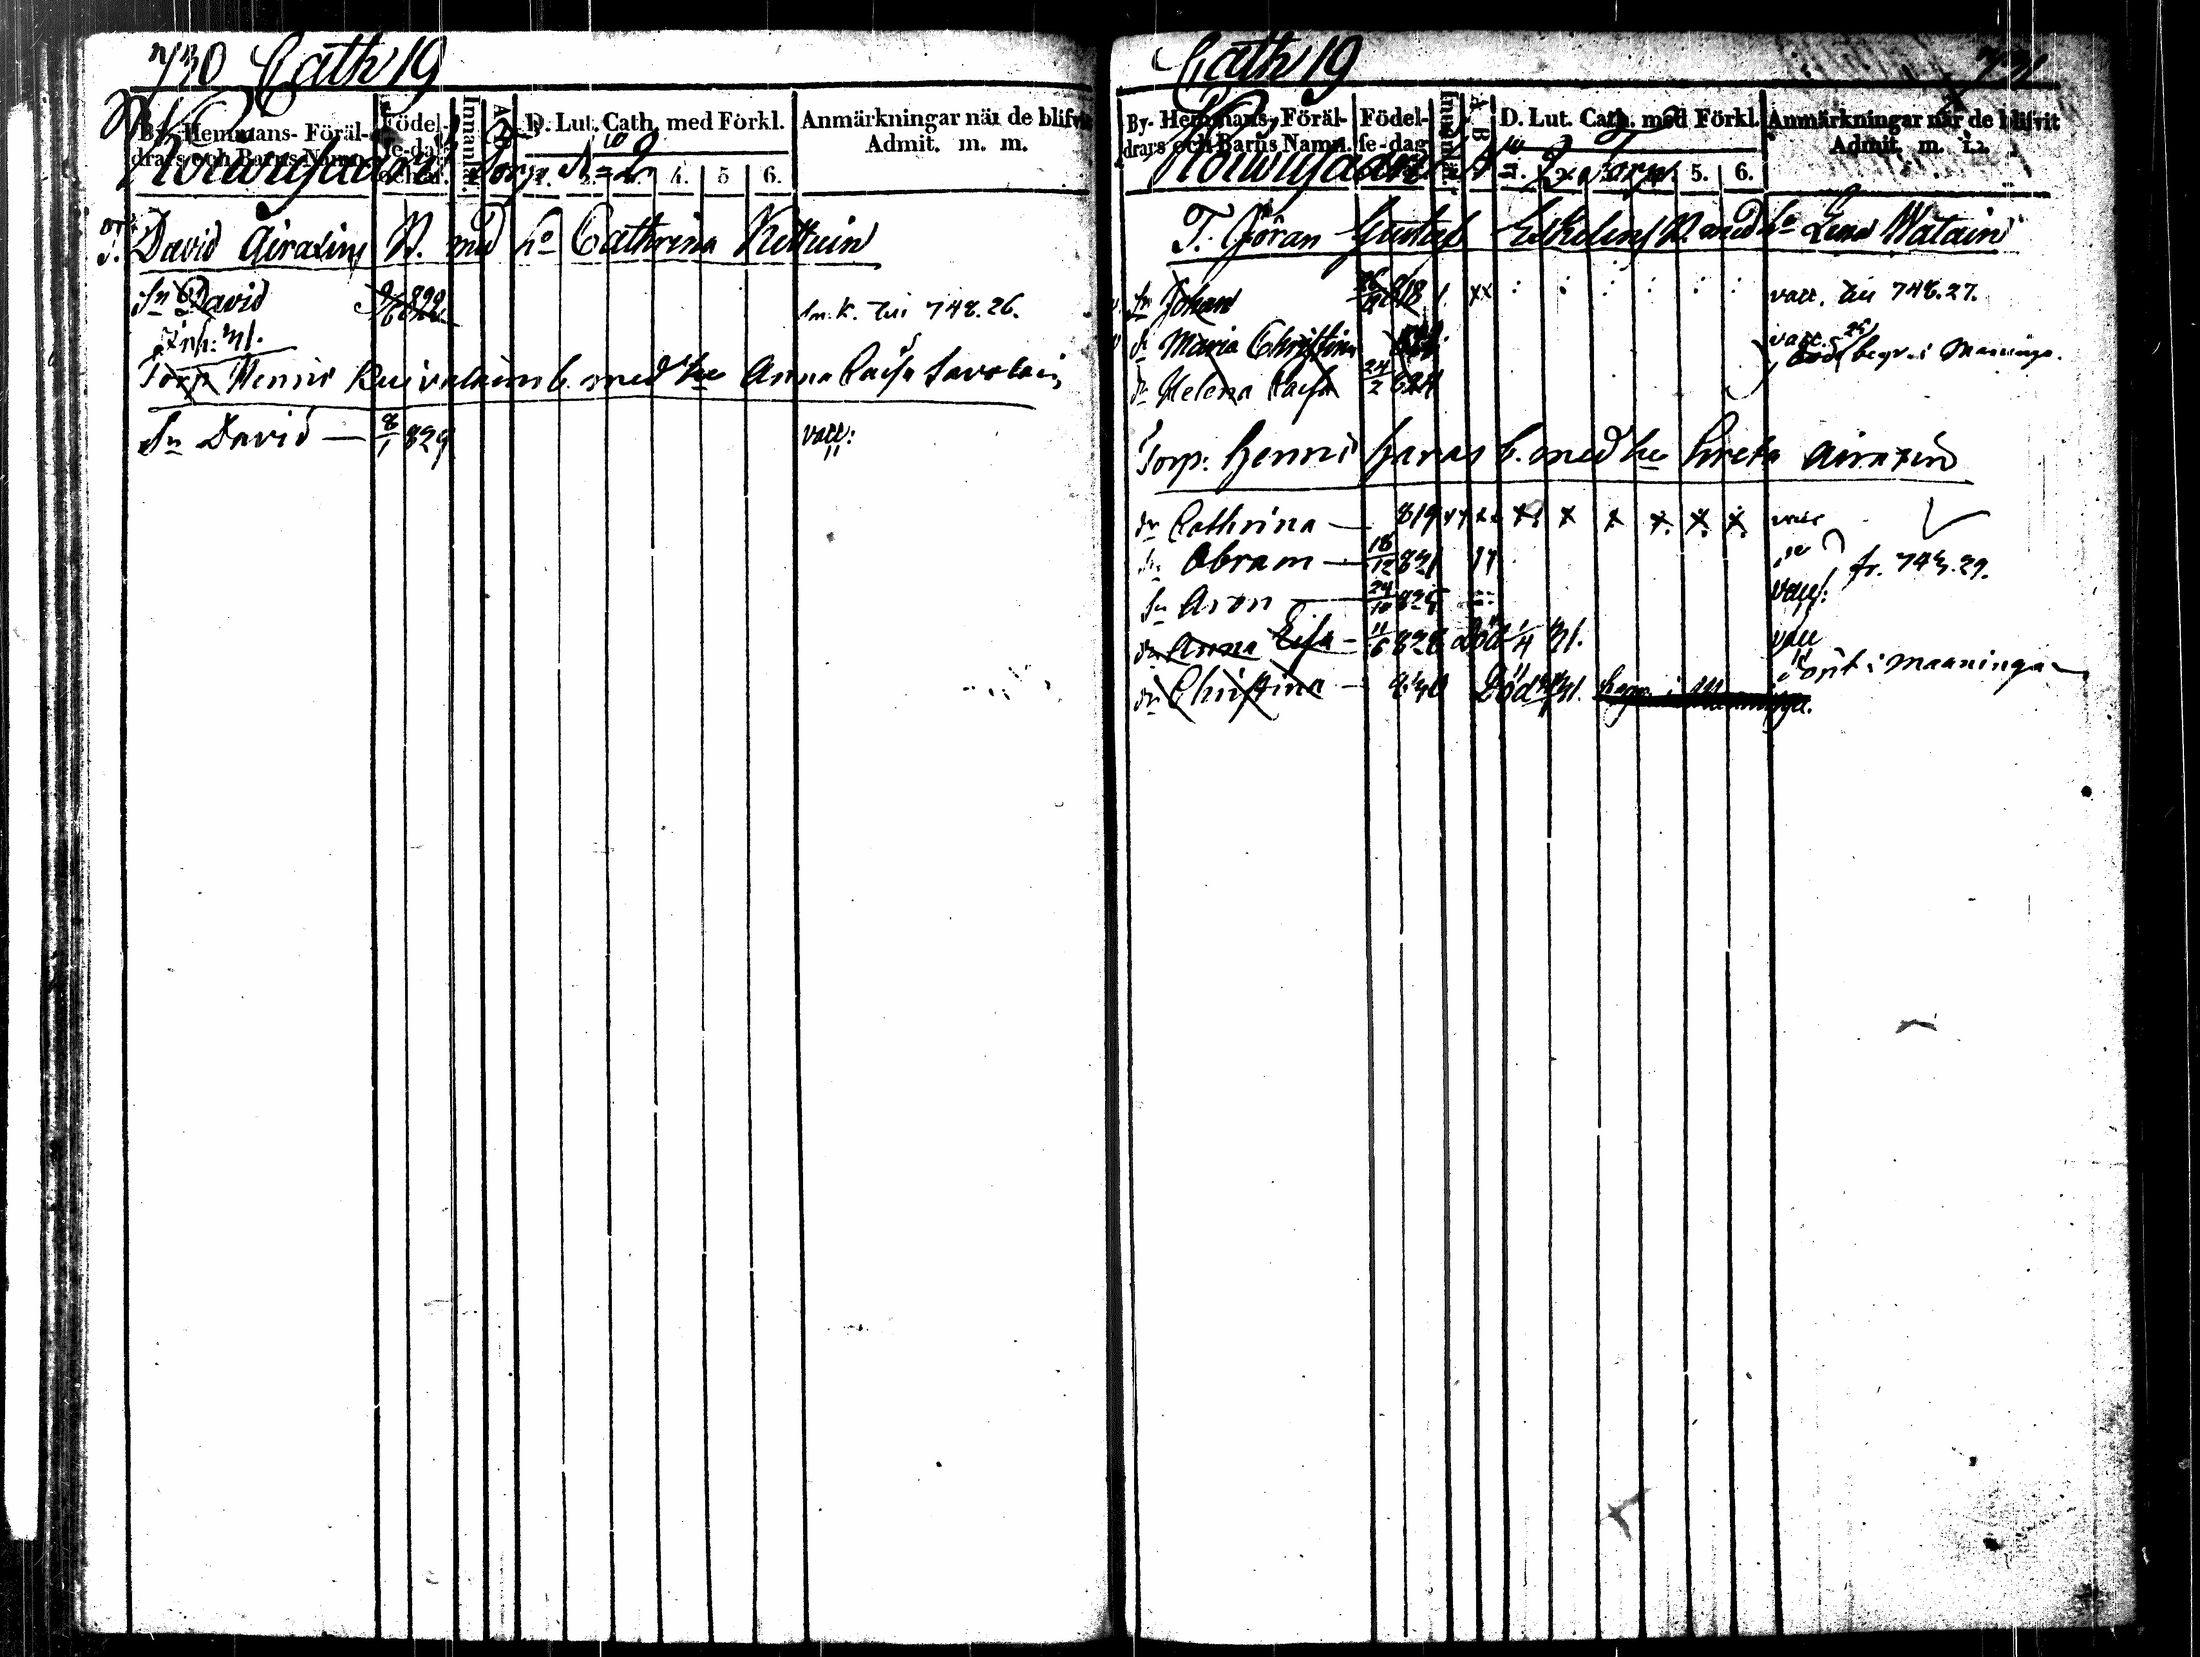 730 Cath 19
By- Hemmans- Föräl-
drars och Barns Namn.
Födel-
se-dag
Inmantal.
A. B.
D. Lut. Cath. med Förkl.
1. 2. 3. 4. 5 6.
Anmärkningar när de blifvit
Admit. m. m.
Torp No 2
T. David Airaxin N. med ho Cathrina Kettuin
Sn David 822 Sn. K. till 748.26.
Inh: 31.
Torp Henric Kuivalain b. med hu Anna Caisa Savolain
Sn David — 8/1 829 vacc:
Cath 19 731
By- Hemmans- Föräl-
drars och Barns Namn.
Födel-
se-dag
Inmantal.
A. B.
D. Lut. Cath. med Förkl.
5. 6.
Anmärkningar när de blifvit
Admit. m. m.
Torp
T. Göran Gustaf Eskelin N. med ho Lena Watain
Sn Johan 818 xx vacc. till 748.27.
Maria Christina vacc. Död begr. i Maaninga.
dr Helena Caisa 24/2 824
Torp: Henric Haras b. med hu Greta Airaxin
dr Cathrina — 819 x x x x x x vacc
Sn Abram — 18/12 821 fr. 743.29.
Sn Aron — 24/10 825 vacc:
dr Anna Lisa — 11/6 828 Död 1/4 31. vacc
dr Christina — 830 Död 31. begr. i Maaninga. Döpt i Maaninga